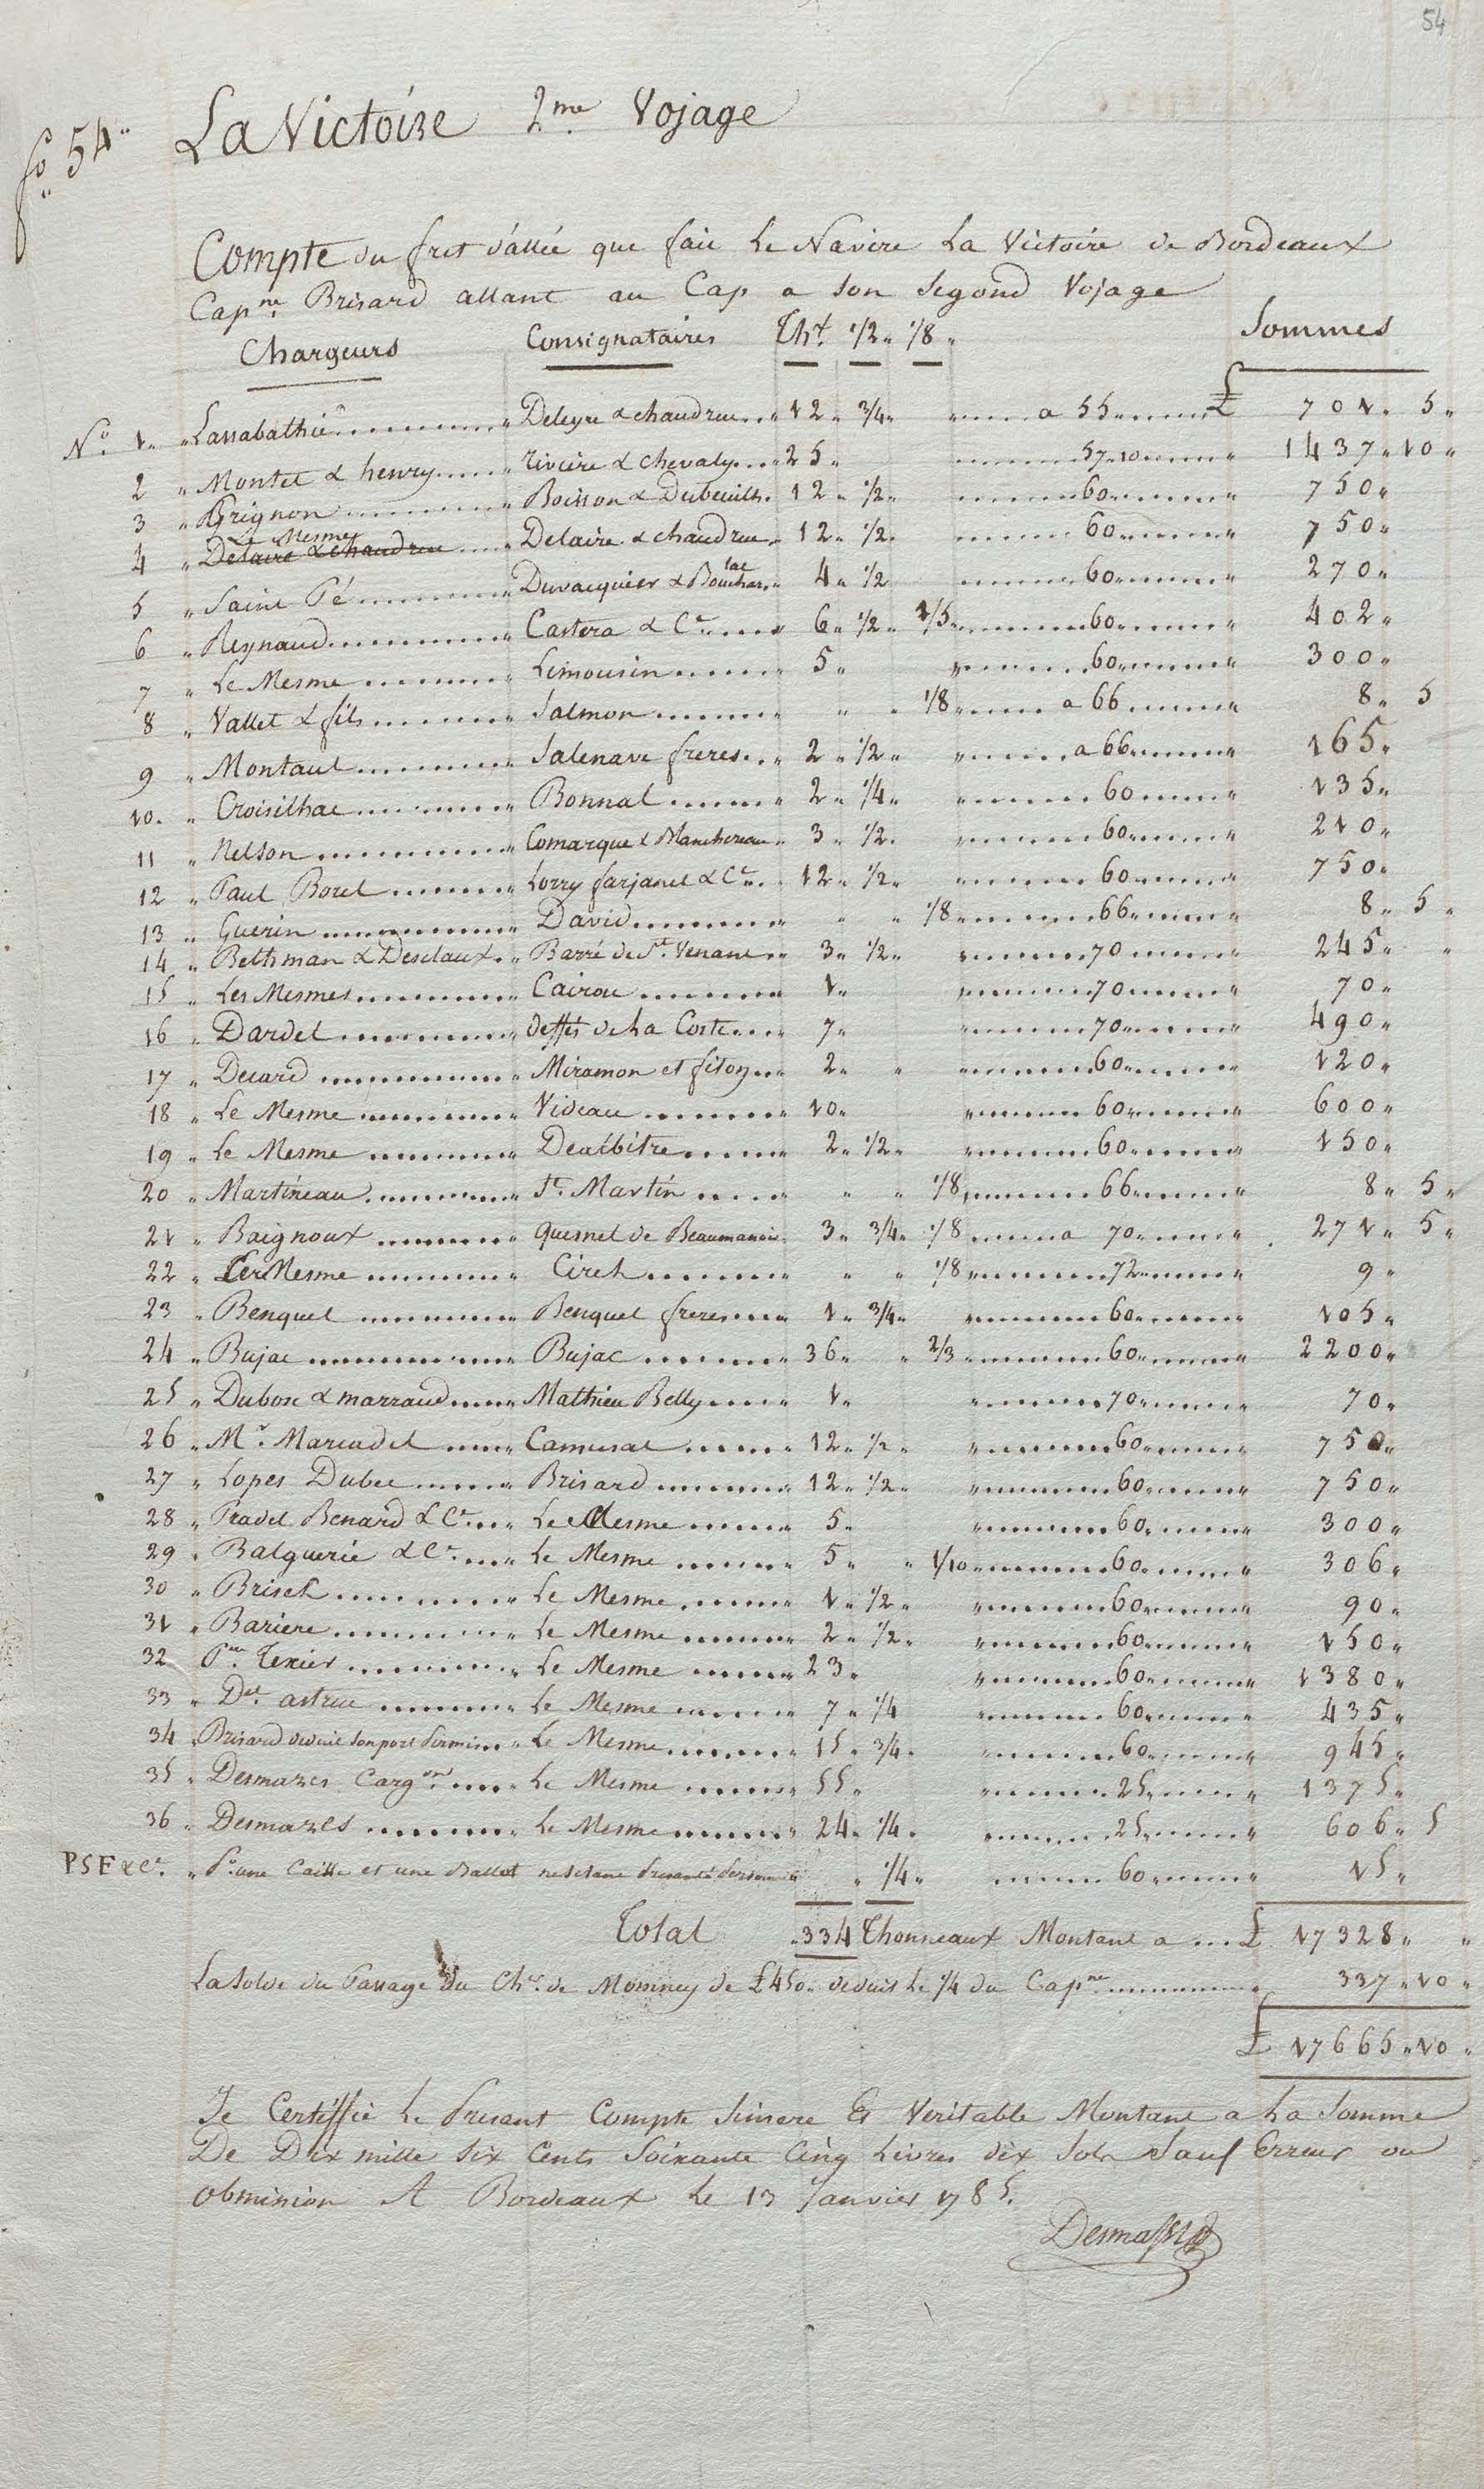 54
fo 54
La Victoire 2me Vojage
Compte du fret d'allée que fait Le Navire La Victoire de Bordeaux
Capne Brisard allant au Cap a Son Segond Vojage
Chargeurs Consignataires Tht 1/2 1/8 Sommes
No 1 Lassabathie Deleyre & chaudrue 12 3/4 a 55 £ 701 5
2 Montet & henry riviere & chevaly 25 57 10 1437 10
3 Grignon Boisson & Dubeuilh 12 1/2 60 750
Le Mesme
4 Delaire & chaudrue Delaire & chaudrue 12 1/2 60 750
5 Saint Pé Duvacquier & Bouthar 4 1/2 60 270
6 Reynaud Castera & Ce 6 1/2 1/5 60 402
7 Le Mesme Limousin 5 60 300
8 Vallet & fils Salmon 1/8 a 66 8 5
9 Montaut Salenave freres 2 1/2 a 66 165
10 Croisilhac Bonnal 2 1/4 60 135
11 Nelson Comarque & Blanchereau 3 1/2 60 210
12 Paul Borel Lorry farjanel & Ce 12 1/2 60 750
13 Guerin David 1/8 66 8 5
14 Bethman & Desclaux Barré de St Venant 3 1/2 70 245
15 Les Mesmes Cairou 1 70 70
16 Dardel deffés de La Coste 7 70 490
17 Decard Miramon et fiton 2 60 120
18 Le Mesme Videau 10 60 600
19 Le Mesme Dealbitre 2 1/2 60 150
20 Martineau St Martin 1/8 66 8 5
21 Baignoux quesnel de Beaumanoir 3 3/4 1/8 a 70 271 5
22 Le Mesme Cirek 1/8 72 9
23 Benquel Benquel freres 1 3/4 60 105
24 Bujac Bujac 36 2/3 60 2200
25 Dubosc & marraud Mathieu Belly 1 70 70
26 Mr Marcadel Camusat 12 1/2 60 750
27 Lopes Dubec Brisard 12 1/2 60 750
28 Pradel Benard & Ce Le Mesme 5 60 300
29 Balguerie & Ce Le Mesme 5 1/10 60 306
30 Brisck Le Mesme 1 1/2 60 90
31 Bariere Le Mesme 2 1/2 60 150
32 Pre Texier Le Mesme 23 60 1380
33 Del astruc Le Mesme 7 1/4 60 435
34 Brisard deduit Son port Permis Le Mesme 15 3/4 60 945
35 Desmazes Cargon Le Mesme 55 25 1375
36 Desmazes Le Mesme 24 1/4 25 606 5
PSF & Ce Pr une Caisse et une Ballot 1/4 60 15
Total 334 Thonneaux Montant a £ 17328
La Solde du Passage du Cher de Mominey de £450 deduit Le 1/4 du Capne 337 10
£ 17665 10
Je Certiffie Le Presant Compte Sinsere Et Veritable Montant a La Somme
De Dix mille Six Cents Soixante Cinq Livres dix Sols Sauf Erreur ou
obmission A Bordeaux Le 13 Janvier 1785.